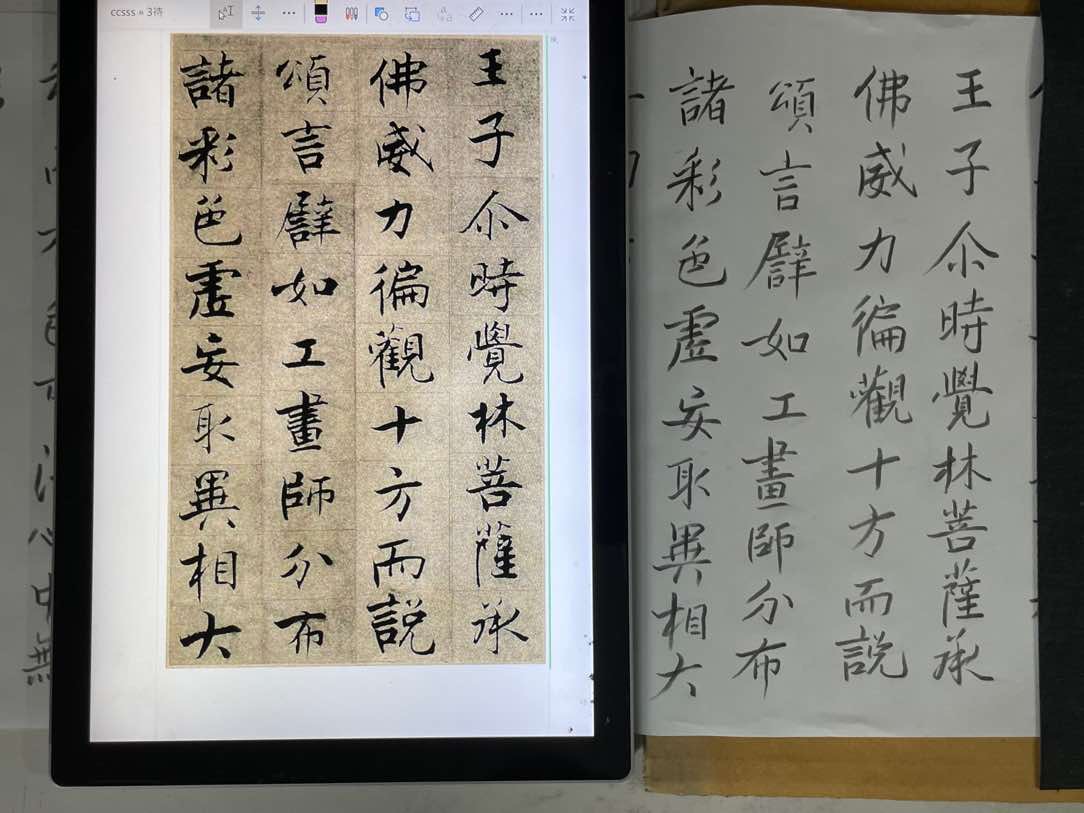 ccsss
3待
王子尒時覺林菩薩承
佛威力徧觀十方而説
頌言譬如工畫師分布
諸彩色虛妄取異相大
王子尒時覺林菩薩承
佛威力徧觀十方而説
頌言譬如工畫師分布
諸彩色虛妄取異相大
心中無